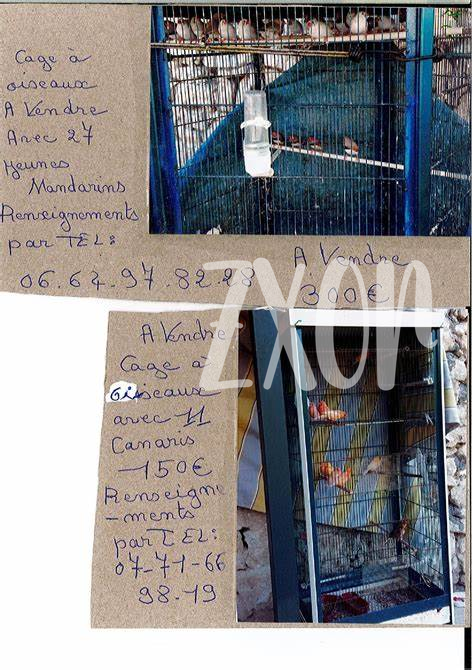 Cage à
oiseaux
A Vendre
Avec 27
jeunes
Mandarins
Renseignements
par TEL:
06.64.97.82.28
A Vendre
300€
zxon
A Vendre
Cage à
Oiseaux
avec 11
Canaris
-150€
Renseigne
-ments
par TEL:
07-71-66
98-19